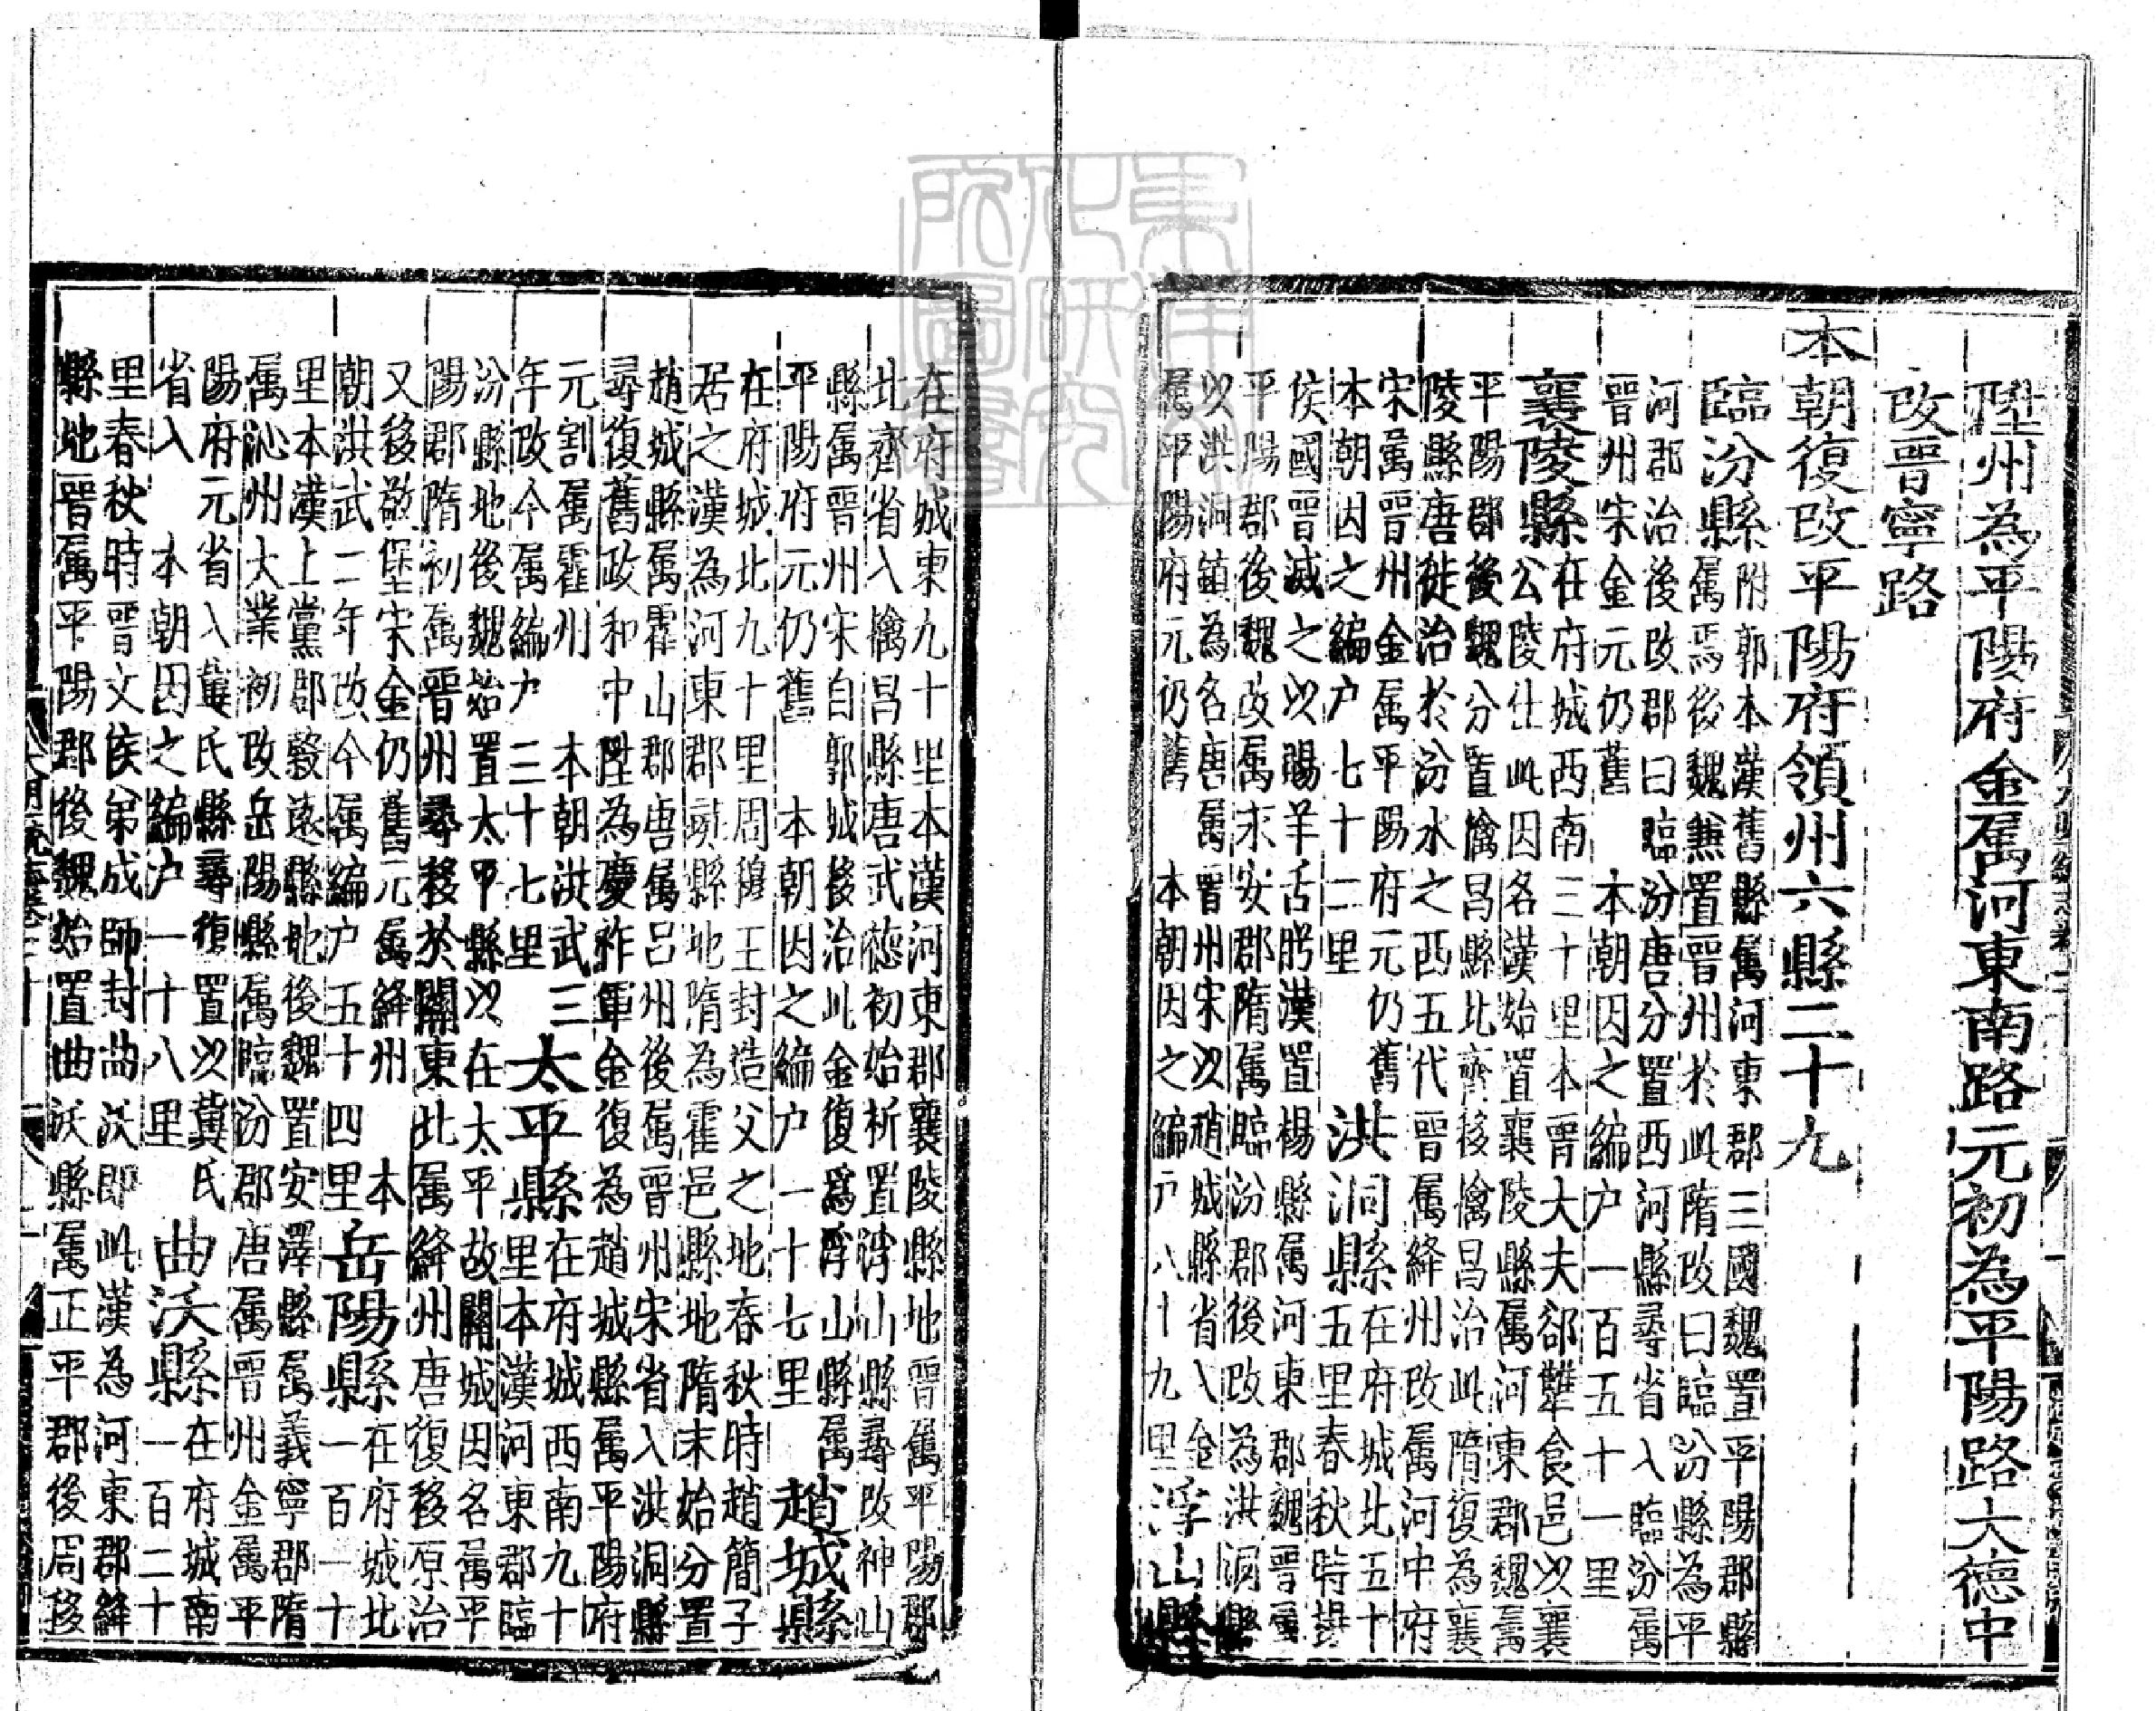 陞州為平陽府金屬河東南路元初為平陽路大德中
改晉寧路
本朝復改平陽府領州六縣二十九
臨汾縣
附郭本漢舊縣屬河東郡三國魏置平陽郡縣
屬焉後魏兼置晉州於此隋改曰臨汾縣為平
河郡治後改郡曰臨汾唐分置西河縣尋省入臨汾屬
晉州宋金元仍舊 本朝因之編户一百五十一里
襄陵縣
在府城西南三十里本晉大夫郤犫食邑以襄
公陵在此因名漢始置襄陵縣屬河東郡魏屬
平陽郡後魏分置擒昌縣北齊移擒昌治此隋復為襄
陵縣唐徙治於汾水之西五代晉屬絳州改屬河中府
宋屬晉州金屬平陽府元仍舊
本朝因之編户七十二里
洪洞縣
在府城北五十
五里春秋時楊
侯國晉滅之以賜羊舌肸漢置楊縣屬河東郡魏晉屬
平陽郡後魏改屬永安郡隋屬臨汾郡後改為洪洞縣
以洪洞鎮為名唐屬晉州宋以趙城縣省入金
屬平陽府元仍舊 本朝因之編户八十九里
浮山縣
在府城東九十里本漢河東郡襄陵縣地晉屬平陽郡
北齊省入擒昌縣唐武德初始析置浮山縣尋改神山
縣屬晉州宋自郭城移治此金復為浮山縣屬
平陽府元仍舊 本朝因之編户一十七里
趙城縣
在府城北九十里周穆王封造父之地春秋時趙簡子
居之漢為河東郡彘縣地隋為霍邑縣地隋末始分置
趙城縣屬霍山郡唐屬呂州後屬晉州宋省入洪洞縣
尋復舊政和中陞為慶祚軍金復為趙城縣屬平陽府
元割屬霍州 本朝洪武三
年改今屬編户三十七里
太平縣
在府城西南九十
里本漢河東郡臨
汾縣地後魏始置太平縣以在太平故關城因名屬平
陽郡隋初屬晉州尋移於關東北屬絳州唐復移原治
又移敬堡宋金仍舊元屬絳州 本
朝洪武二年改今屬編户五十四里
岳陽縣
在府城北
一百一十
里本漢上黨郡穀遠縣地後魏置安澤縣屬義寧郡隋
屬沁州大業初改岳陽縣屬臨汾郡唐屬晉州金屬平
陽府元省入冀氏縣尋復置以冀氏
省入 本朝因之編户一十八里
曲沃縣
在府城南
一百二十
里春秋時晉文侯弟成師封曲沃即此漢為河東郡絳
縣地晉屬平陽郡後魏始置曲沃縣屬正平郡後周移